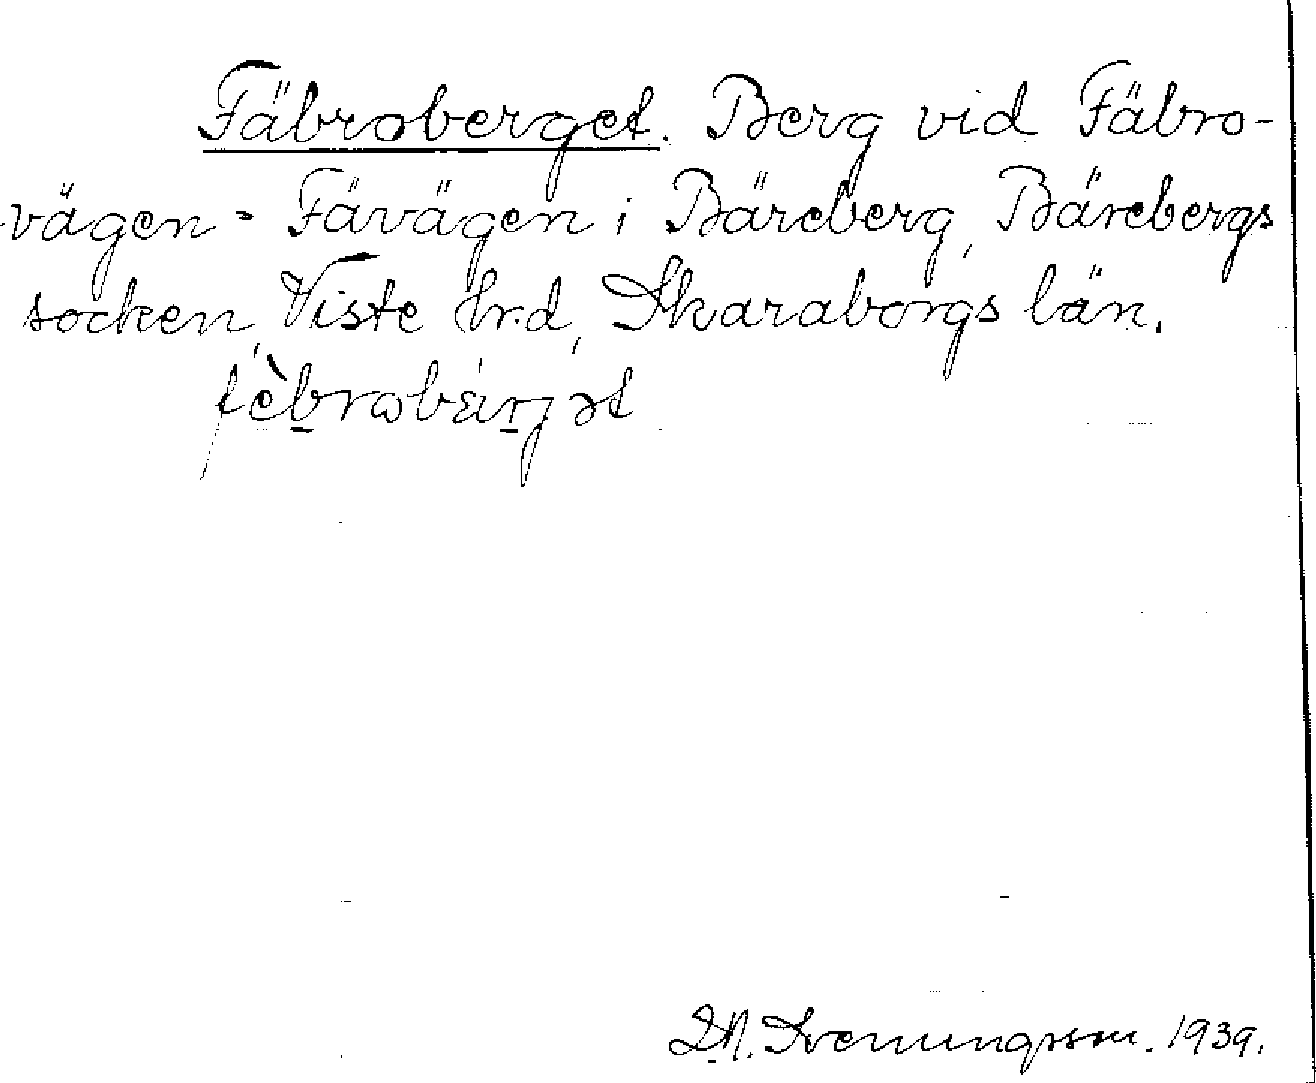 Fäbroberget. Berg vid Fäbro-
vägen = Fävägen i Bäreberg, Bärebergs
socken, Viste hrd, Skaraborgs län.
fèbrobærjət
D.N. Svenungsson. 1939.